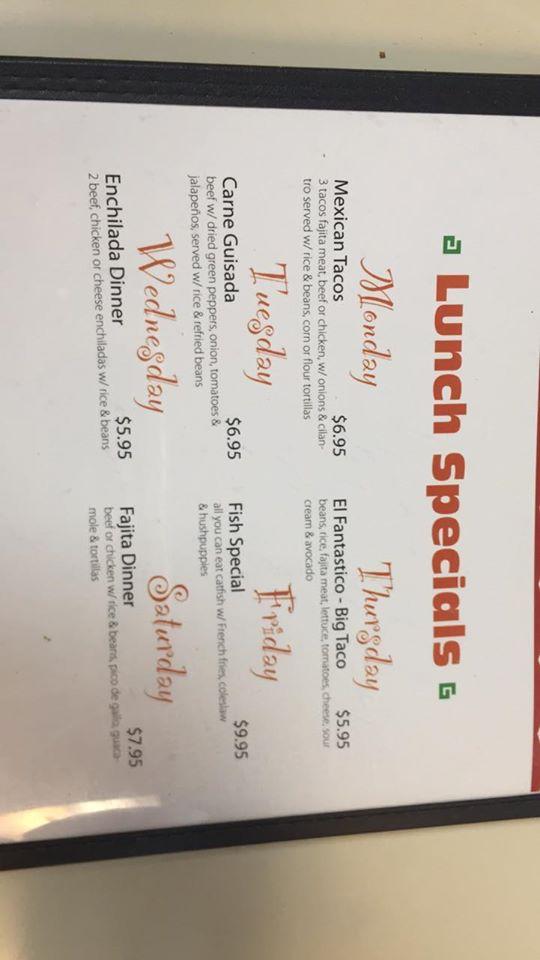 Lunch Specials
Monday
Mexican Tacos $6.95
3 tacos fajita meat, beef or chicken, w/ onions & cilan-
tro served w/ rice & beans, corn or flour tortillas
Tuesday
Carne Guisada $6.95
beef w/ dried green peppers, onion, tomatoes &
jalapeños, served w/ rice & refried beans
Wednesday
Enchilada Dinner $5.95
2 beef, chicken or cheese enchiladas w/ rice & beans
Thursday
El Fantastico - Big Taco $5.95
beans, rice, fajita meat, lettuce, tomatoes, cheese, sour
cream & avocado
Friday
Fish Special $9.95
all you can eat catfish w/ French fries, coleslaw
& hushpuppies
Saturday
Fajita Dinner $7.95
beef or chicken w/ rice & beans, pico de gallo, guaca-
mole & tortillas